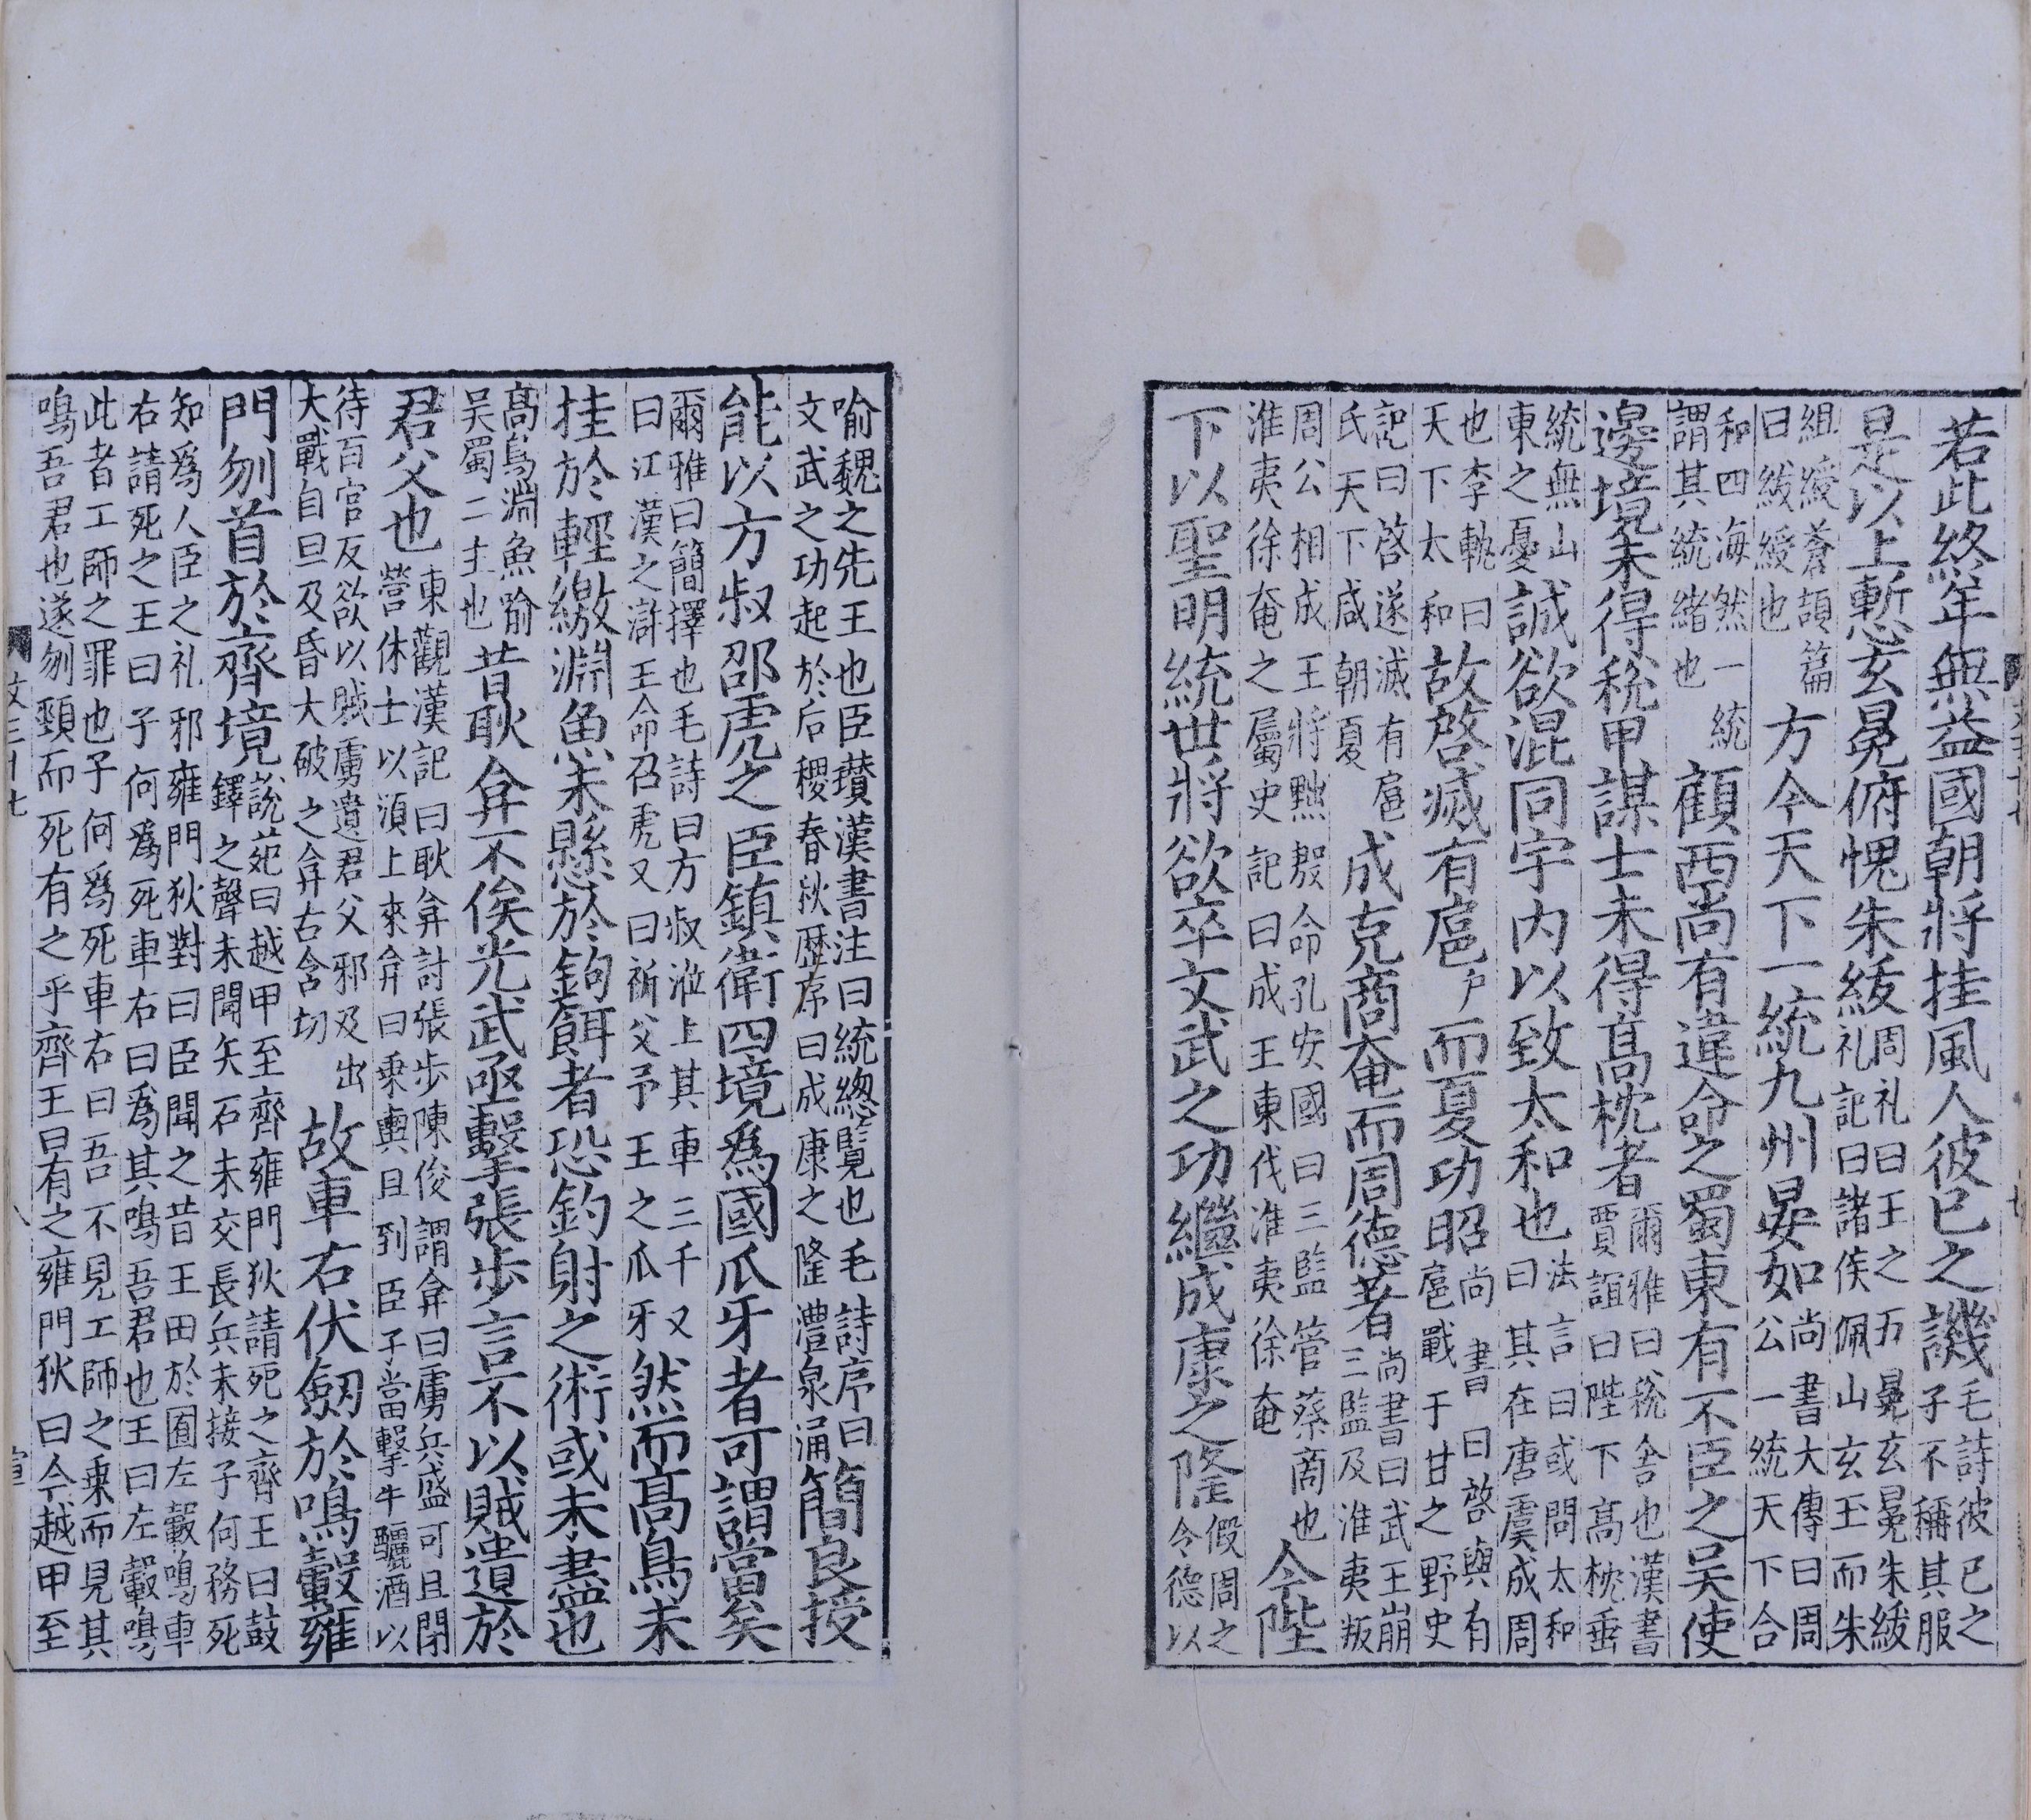 若此終年無益國朝將挂風人彼已之譏毛詩彼已之子不稱其服
是以上慙玄冕俯愧朱紱周礼曰王之五冕玄冕朱紘礼記曰諸侯佩山玄玉而朱
組綬蒼頡篇曰紱綬也方今天下一統九州晏如尚書大傳曰周公一統天下合
和四海然一統謂其統緒也顧西尚有違命之蜀東有不臣之吴使
邊境未得稅甲謀士未得髙枕者爾雅曰稅舍也漢書賈誼曰陛下髙枕垂
統無山東之憂誠欲混同宇内以致太和也法言曰或問太和曰其在唐虞成周
也李軌曰天下太和故啓滅有扈户而夏功昭尚書曰啓與有扈戰于甘之野史
記曰啓遂滅有扈氏天下咸朝夏成克商奄而周德著尚書曰武王崩三監及淮夷叛
周公相成王將黜殷命孔安國曰三監管蔡商也淮夷徐奄之屬史記曰成王東伐淮夷徐奄今陛
下以聖明統世將欲卒文武之功繼成康之隆假周之令德以
喻魏之先王也臣瓉漢書注曰統緫覧也毛詩序曰文武之功起於后稷春秋歷序曰成康之隆澧泉涌簡良授
能以方叔邵虎之臣鎮衛四境爲國爪牙者可謂當矣
爾雅曰簡擇也毛詩曰方叔涖上其車三千又曰江漢之滸王命召虎又曰祈父予王之爪牙然而髙鳥未
挂於輕繳淵魚未懸於鉤餌者恐釣射之術或未盡也
髙鳥淵魚喻吴蜀二主也昔耿弇不俟光武亟擊張步言不以賊遺於
君父也東觀漢記曰耿弇討張步陳俊謂弇曰虜兵盛可且閉營休士以湏上來弇曰乗輿且到臣子當擊牛釃酒以
待百官反欲以賊虜遺君父邪及出大戰自旦及昏大破之弇古含切故車右伏劒於鳴轂雍
門刎首於齊境說苑曰越甲至齊雍門狄請死之齊王曰鼓鐸之聲未聞矢石未交長兵未接子何務死
知爲人臣之礼邪雍門狄對曰臣聞之昔王田於囿左轂鳴車右請死之王曰子何爲死車右曰爲其鳴吾君也王曰左轂鳴
此者工師之罪也子何爲死車右曰吾不見工師之乗而見其鳴吾君也遂刎頸而死有之乎齊王曰有之雍門狄曰今越甲至